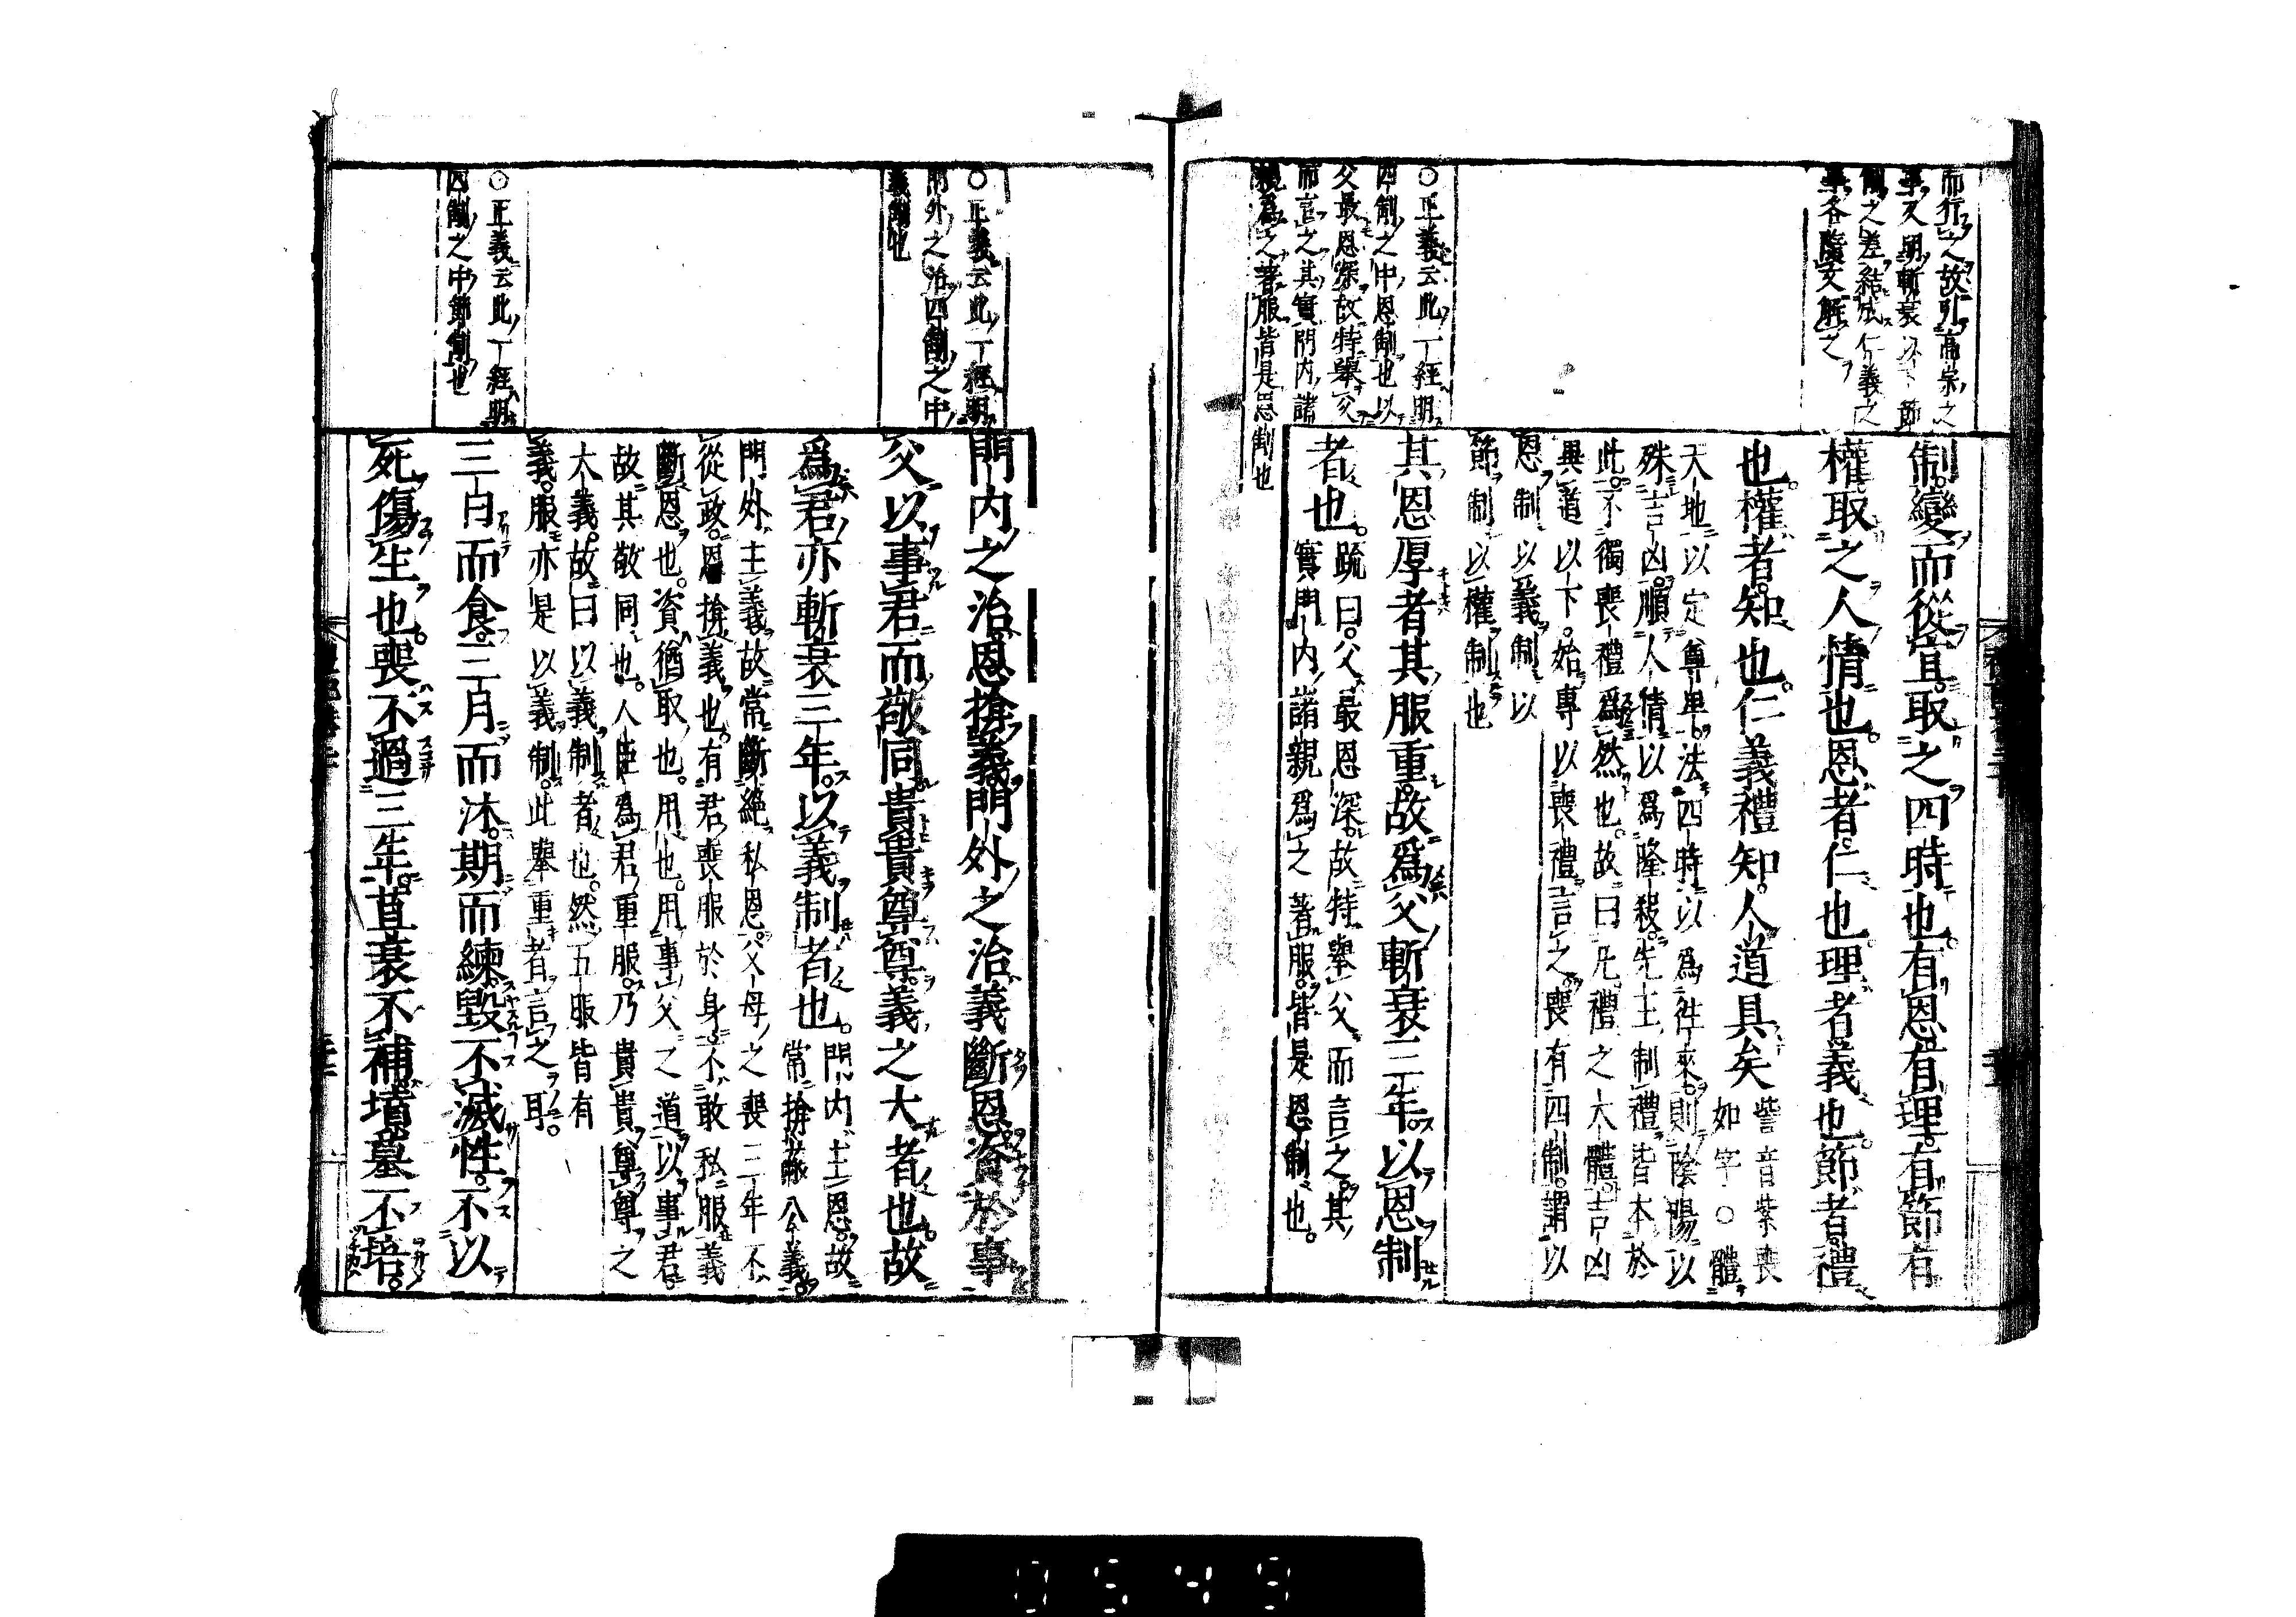 而行之故引高宗之
事又明斬衰以下節
制之差結成仁義之
事各隨文解之
制變而從宜取之四時也有恩有理有節有
權取之人情也恩者仁也理者義也節者禮
也權者知也仁義禮知人道具矣
訾音紫喪
如字○體
天地以定尊卑法四時以爲往來則陰陽以
殊吉凶順人情以爲隆殺先王制禮皆本於
此不獨喪禮爲然也故曰凡禮之大體吉凶
異道以下始專以喪禮言之喪有四制謂以
恩制以義制以
節制以權制也
○正義云此一經明
四制之中恩制也以
父最恩深故特舉父
而言之其實門内諸
親爲之著服皆是恩制也
其恩厚者其服重故爲父斬衰三年以恩制
者也
疏曰父最恩深故特舉父而言之其
實門内諸親爲之著服皆是恩制也
○正義云此一經明
門外之治四制之中
義制也
門内之治恩揜義門外之治義斷恩資於事
父以事君而敬同貴貴尊尊義之大者也故
爲君亦斬衰三年以義制者也
門内主恩故
常揜蔽公義
門外主義故常斷絶私恩父母之喪三年不
從政恩揜義也有君喪服於身不敢私服義
斷恩也資猶取也用也用事父之道以事君
故其敬同也人臣爲君重服乃貴貴尊尊之
大義故曰以義制者也然五服皆有
義服亦是以義制此舉重者言之耳
○正義云此一經明
四制之中節制也
三日而食三月而沐期而練毀不滅性不以
死傷生也喪不過三年苴衰不補墳墓不培
0549